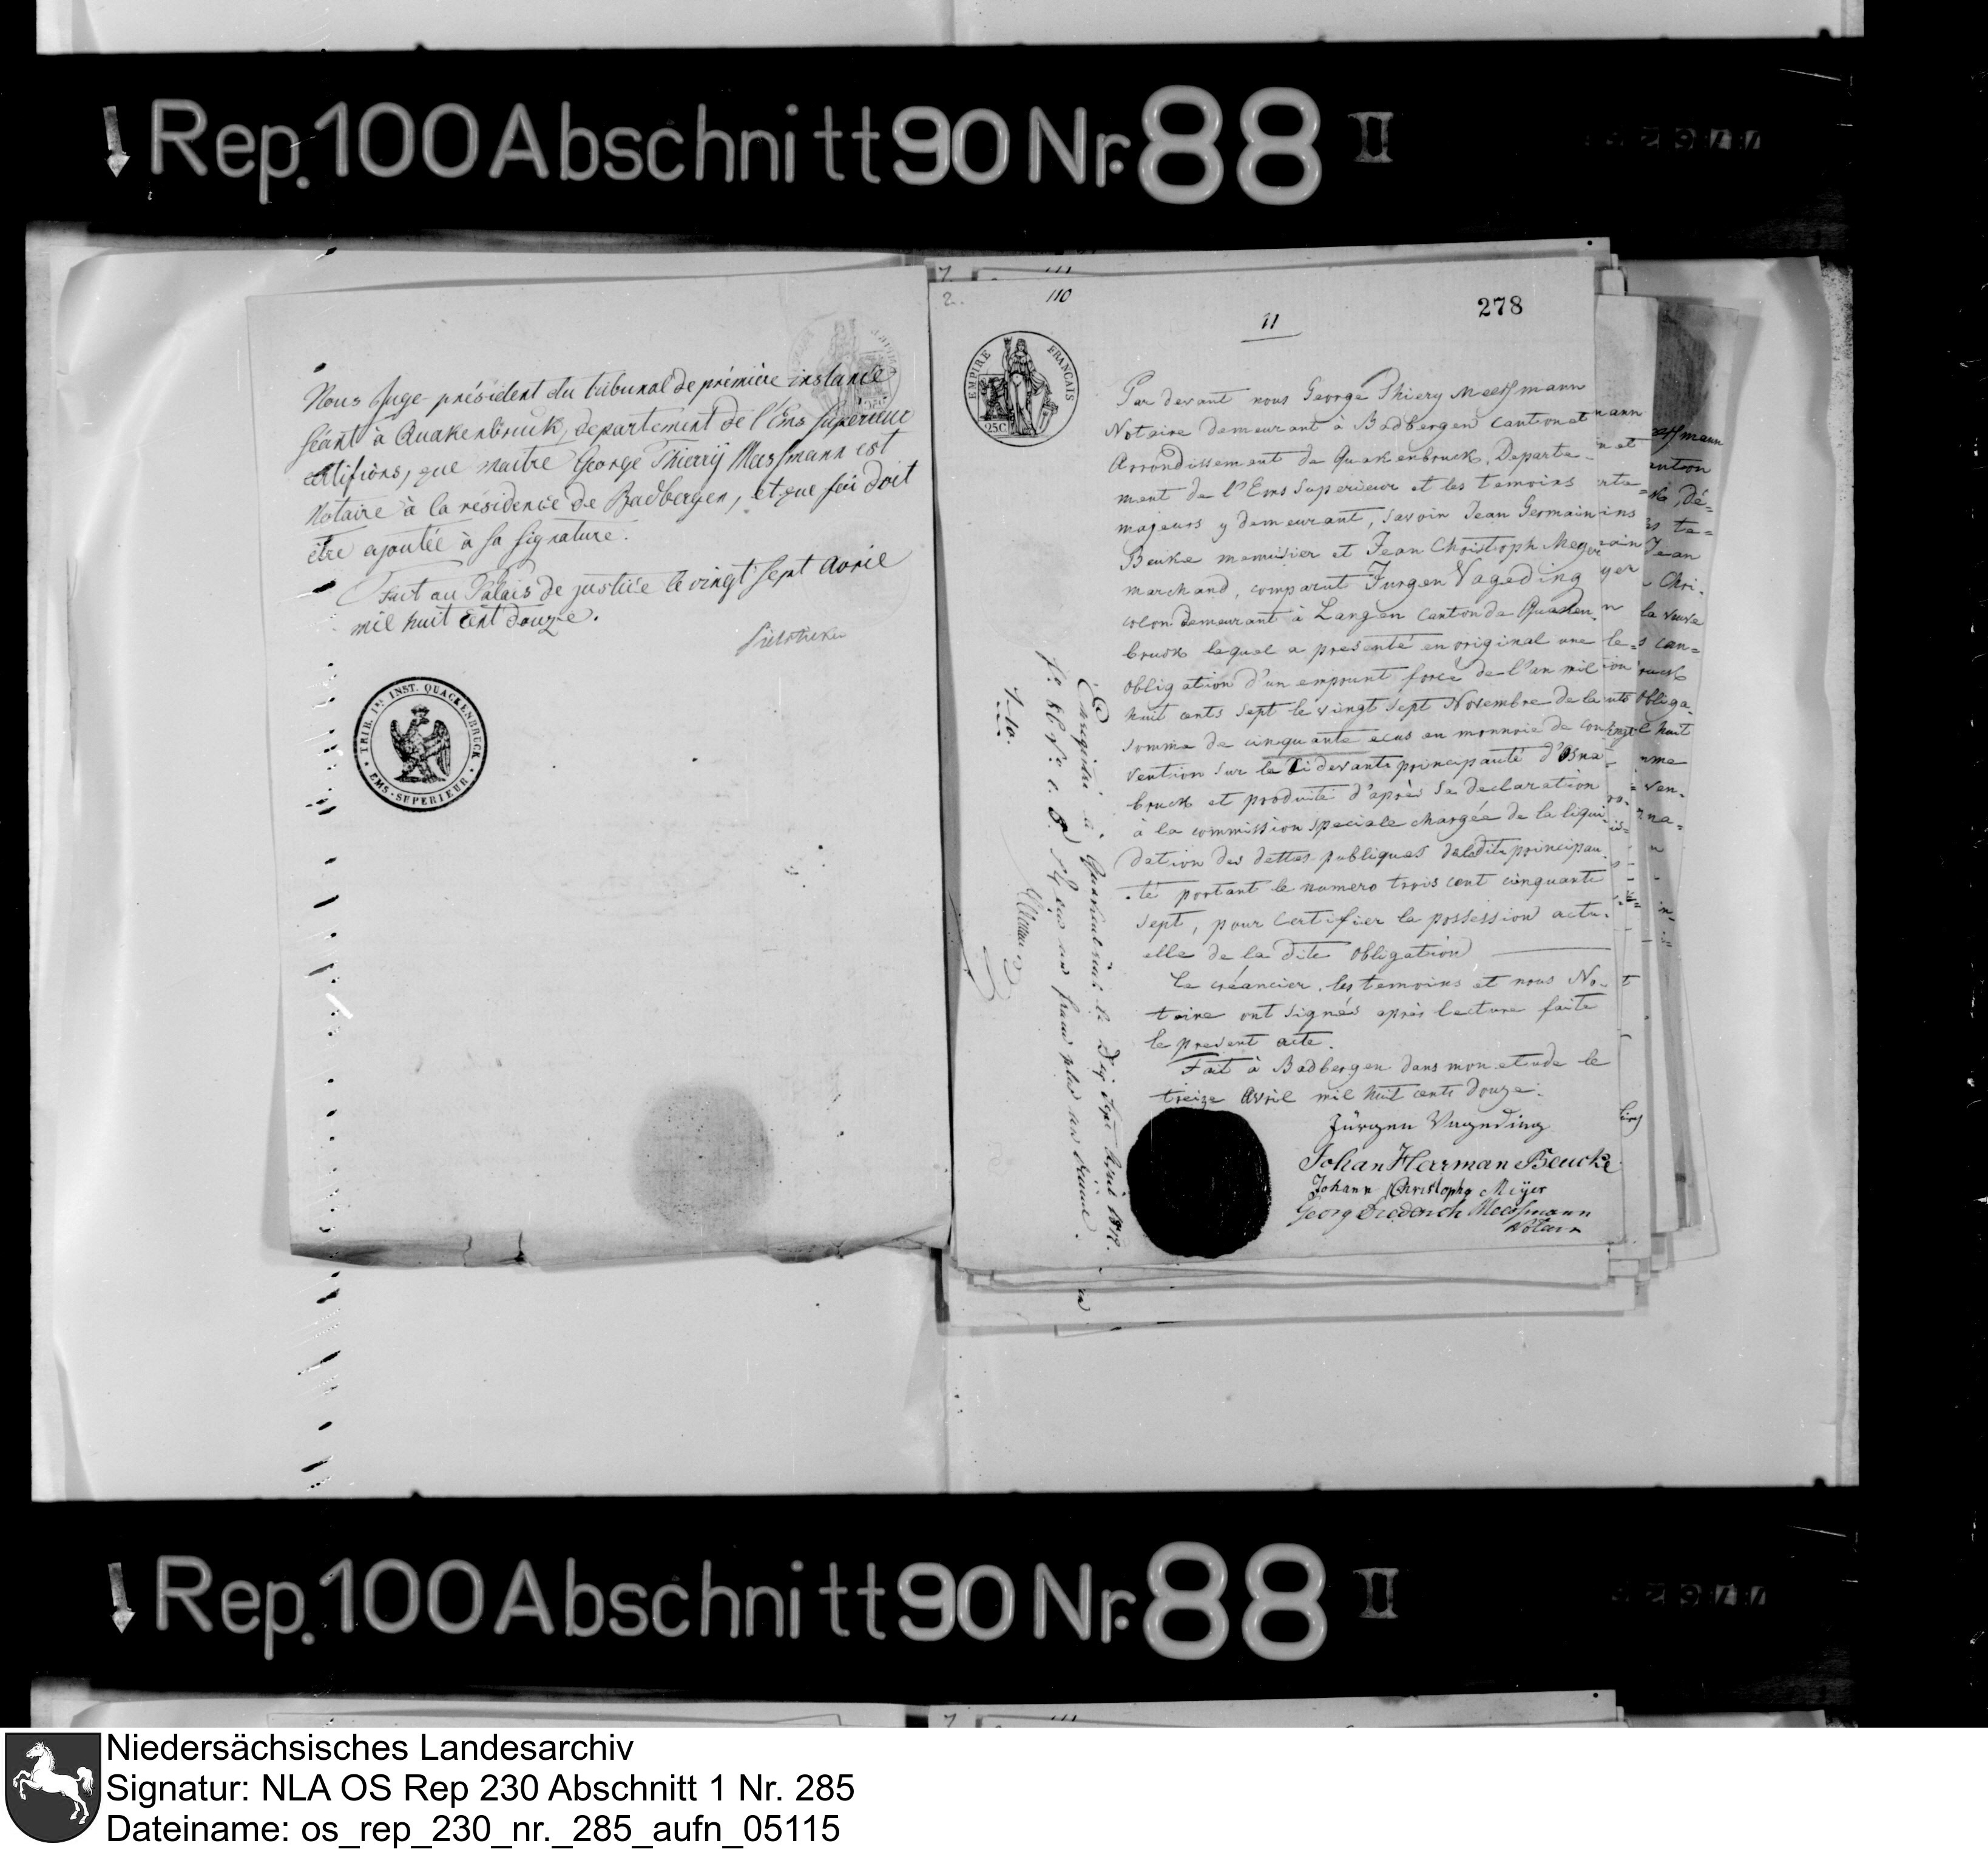 Rep. 100 Abschnitt 90 Nr. 88 II
Nous Juge-président du tribunal de prémière instance
séant à Quakenbruck, departement de l'Ems superieur
certifions, que maitre George Thierry Meessmann est
Notaire à la résidence de Badbergen, et que foi doit
être ajoutée à sa signature.
Fait au Palais de justice le vingt sept Avril
mil huit cent douze.
TRIB. 1re INST. QUACKENBRUCK
EMS-SUPERIEUR
2.
110
11
278
EMPIRE FRANÇAIS
25C
Par devant nous George Thiery Meessmann
Notaire demeurant à Badbergen Canton et
Arrondissement de Quakenbruck, Departe-
ment de l'Ems Superieur et les temoins
majeurs y demeurant, savoir Jean Germain
Beuke menuisier et Jean Christoph Meyer
marchand, comparut Jurgen Vageding
colon demeurant à Langen Canton de Quaken-
bruck lequel a presenté en original une
obligation d'un emprunt forcé de l'an mil
huit cents sept le vingt sept Novembre de la
somme de cinquante ecus en monnoie de con-
vention sur la Ci devante principauté d'Osna-
bruck et produite d'après sa declaration
à la commission speciale chargée de la liqui-
dation des dettes publiques de ladite principau-
té portant le numero trois cent cinquante
sept, pour certifier la possession actu-
elle de la dite obligation
Le créancier, les temoins et nous No-
taire ont signés après lecture faite
le present acte.
Fait à Badbergen dans mon etude le
treize Avril mil huit cents douze.
Jürgen Vageding
Johan Herman Beucke
Johann Christoph Meÿer
Georg Diederich Meessmann
Notair
Enregistré à Quakenbrück le dix sept Avril 1812.
un franc plus un décime.
Rep. 100 Abschnitt 90 Nr. 88 II
Niedersächsisches Landesarchiv
Signatur: NLA OS Rep 230 Abschnitt 1 Nr. 285
Dateiname: os_rep_230_nr._285_aufn_05115